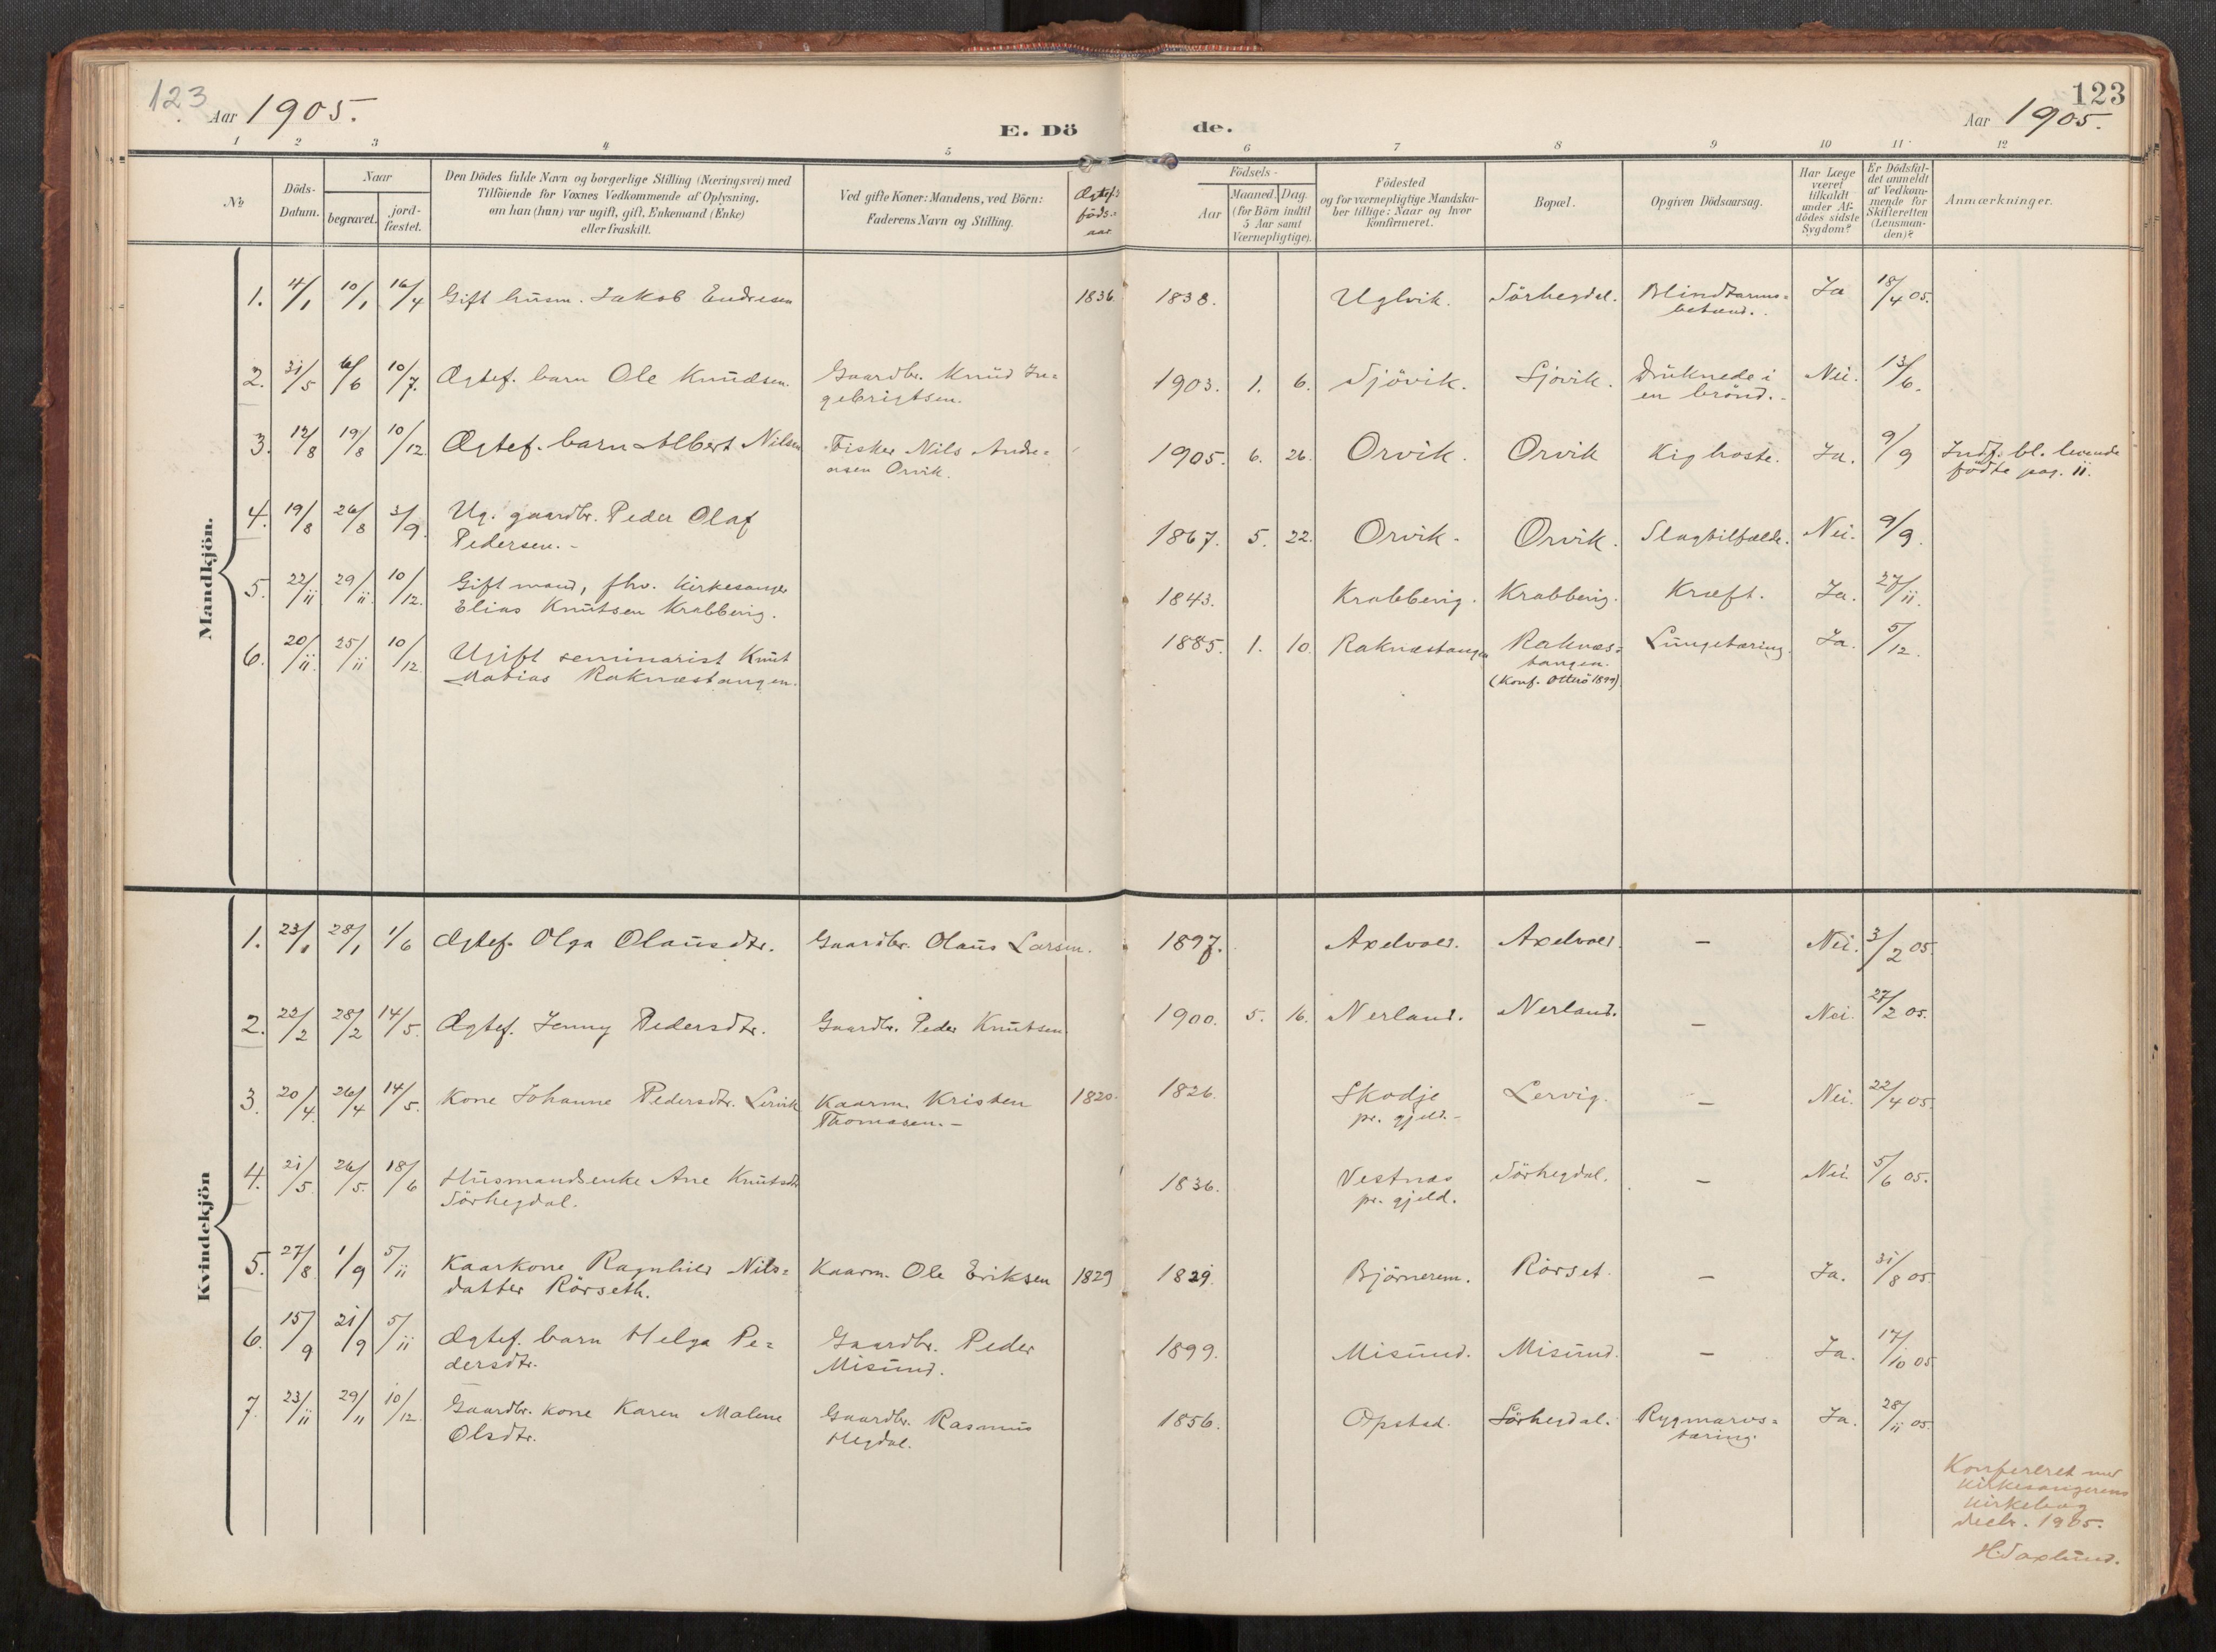 123
Aar 1905.
E. Dö de.
123
Aar 1905.
1 2 3 4 5 6 7 8 9 10 11 12
No
Döds-
Datum.
Naar
begravet.
jord-
fæstet.
Den Dödes fulde Navn og borgerlige Stilling (Næringsvei) med
Tilföiende for Voxnes Vedkommende af Oplysning,
om han (hun) var ugift, gift, Enkemand (Enke)
eller fraskilt.
Ved gifte Koner: Mandens, ved Börn:
Faderens Navn og Stilling.
Ægtef.s
föds.=
aar.
Födsels-
Aar
Maaned. Dag.
(for Börn indtil
5 Aar samt
Værnepligtige).
Födested
og for værnepligtige Mandska-
ber tillige: Naar og hvor
konfirmeret.
Bopæl.
Opgiven Dödsaarsag.
Har Læge
været
tilkaldt
under Af-
dödes sidste
Sygdom?
Er Dödsfal-
det anmeldt
af Vedkom-
mende for
Skifteretten
(Lensman-
den)?
Anmærkninger.
Mandkjön.
1. 4/1 10/1 16/4 Gift husm. Jakob Endresen 1836. 1838. Uglvik. Sörhegdal. Blindtarms=
betænd. Ja 18/4 05.
2. 31/5 6/6 10/7. Ægtef. barn Ole Knudsen. Gaardbr. Knud In=
gebrigtsen. 1903. 1. 6. Sjövik. Sjövik. Druknede i
en brönd. Nei. 13/6.
3. 12/8 19/8 10/12. Ægtef. barn Albert Nilsen Fisker Nils Andre=
asen Orvik. 1905. 6. 26. Orvik. Orvik Kighoste. Ja. 9/9 Indf. bl. levende
födte pag. 11.
4. 19/8 26/8 3/9. Ug. gaardbr. Peder Olaf
Pedersen. - 1867. 5. 22. Orvik. Orvik. Slagtilfælde. Nei. 9/9.
5. 22/11 29/11 10/12. Gift mand, fhv. kirkesanger
Elias Knutsen Krabbevig. 1843. Krabbevig. Krabbevig. Kræft. Ja. 27/11.
6. 20/11 25/11 10/12 Ugift seminarist Knut
Matias Raknæstangen. 1885. 1. 10. Raknæstangen Raknæs=
tangen.
(Konf. Otterö 1899) Lungetæring. Ja. 5/12.
Kvindekjön
1. 23/1 28/1 1/6 Ægtef. Olga Olausdtr. Gaardbr. Olaus Larsen. 1897. Axelvold. Axelvold. - Nei. 3/2 05.
2. 22/2 28/2 14/5. Ægtef. Jenny Pedersdtr. Gaardbr. Peder Knutsen 1900. 5. 16. Nerland. Nerland. - Nei. 27/2 05.
3. 20/4 26/4 14/5. Kone Johanne Pedersdtr. Lervik Kaarm. Kristen
Thomasen. - 1820. 1826. Skodje
pr. gjeld. - Lervig. - Nei. 22/4 05.
4. 21/5 26/5. 18/6 Husmandsenke Ane Knutsdtr
Sörhegdal. 1836. Vestnæs
pr. gjeld. Sörhegdal. - Nei. 5/6 05.
5. 27/8 1/9 5/11 Kaarkone Ragnhild Nils=
datter Rörseth. Kaarm. Ole Eriksen 1829 1829. Björnerem. Rörset. - Ja. 31/8 05.
6. 15/9 21/9 5/11 Ægtef. barn Helga Pe=
dersdtr. Gaardbr. Peder
Misund. 1899. Misund. Misund. - Ja. 17/10 05
7. 23/11 29/11 10/12. Gaardbr. kone Karen Malene
Olsdtr. Gaardbr. Rasmus
Hegdal. 1856. Opstad. Sörhegdal. Rygmarvs=
tæring. Ja. 28/11 05
Konfereret med
kirkesangerens
kirkebog
decbr. 1905.
H. Saxlund.